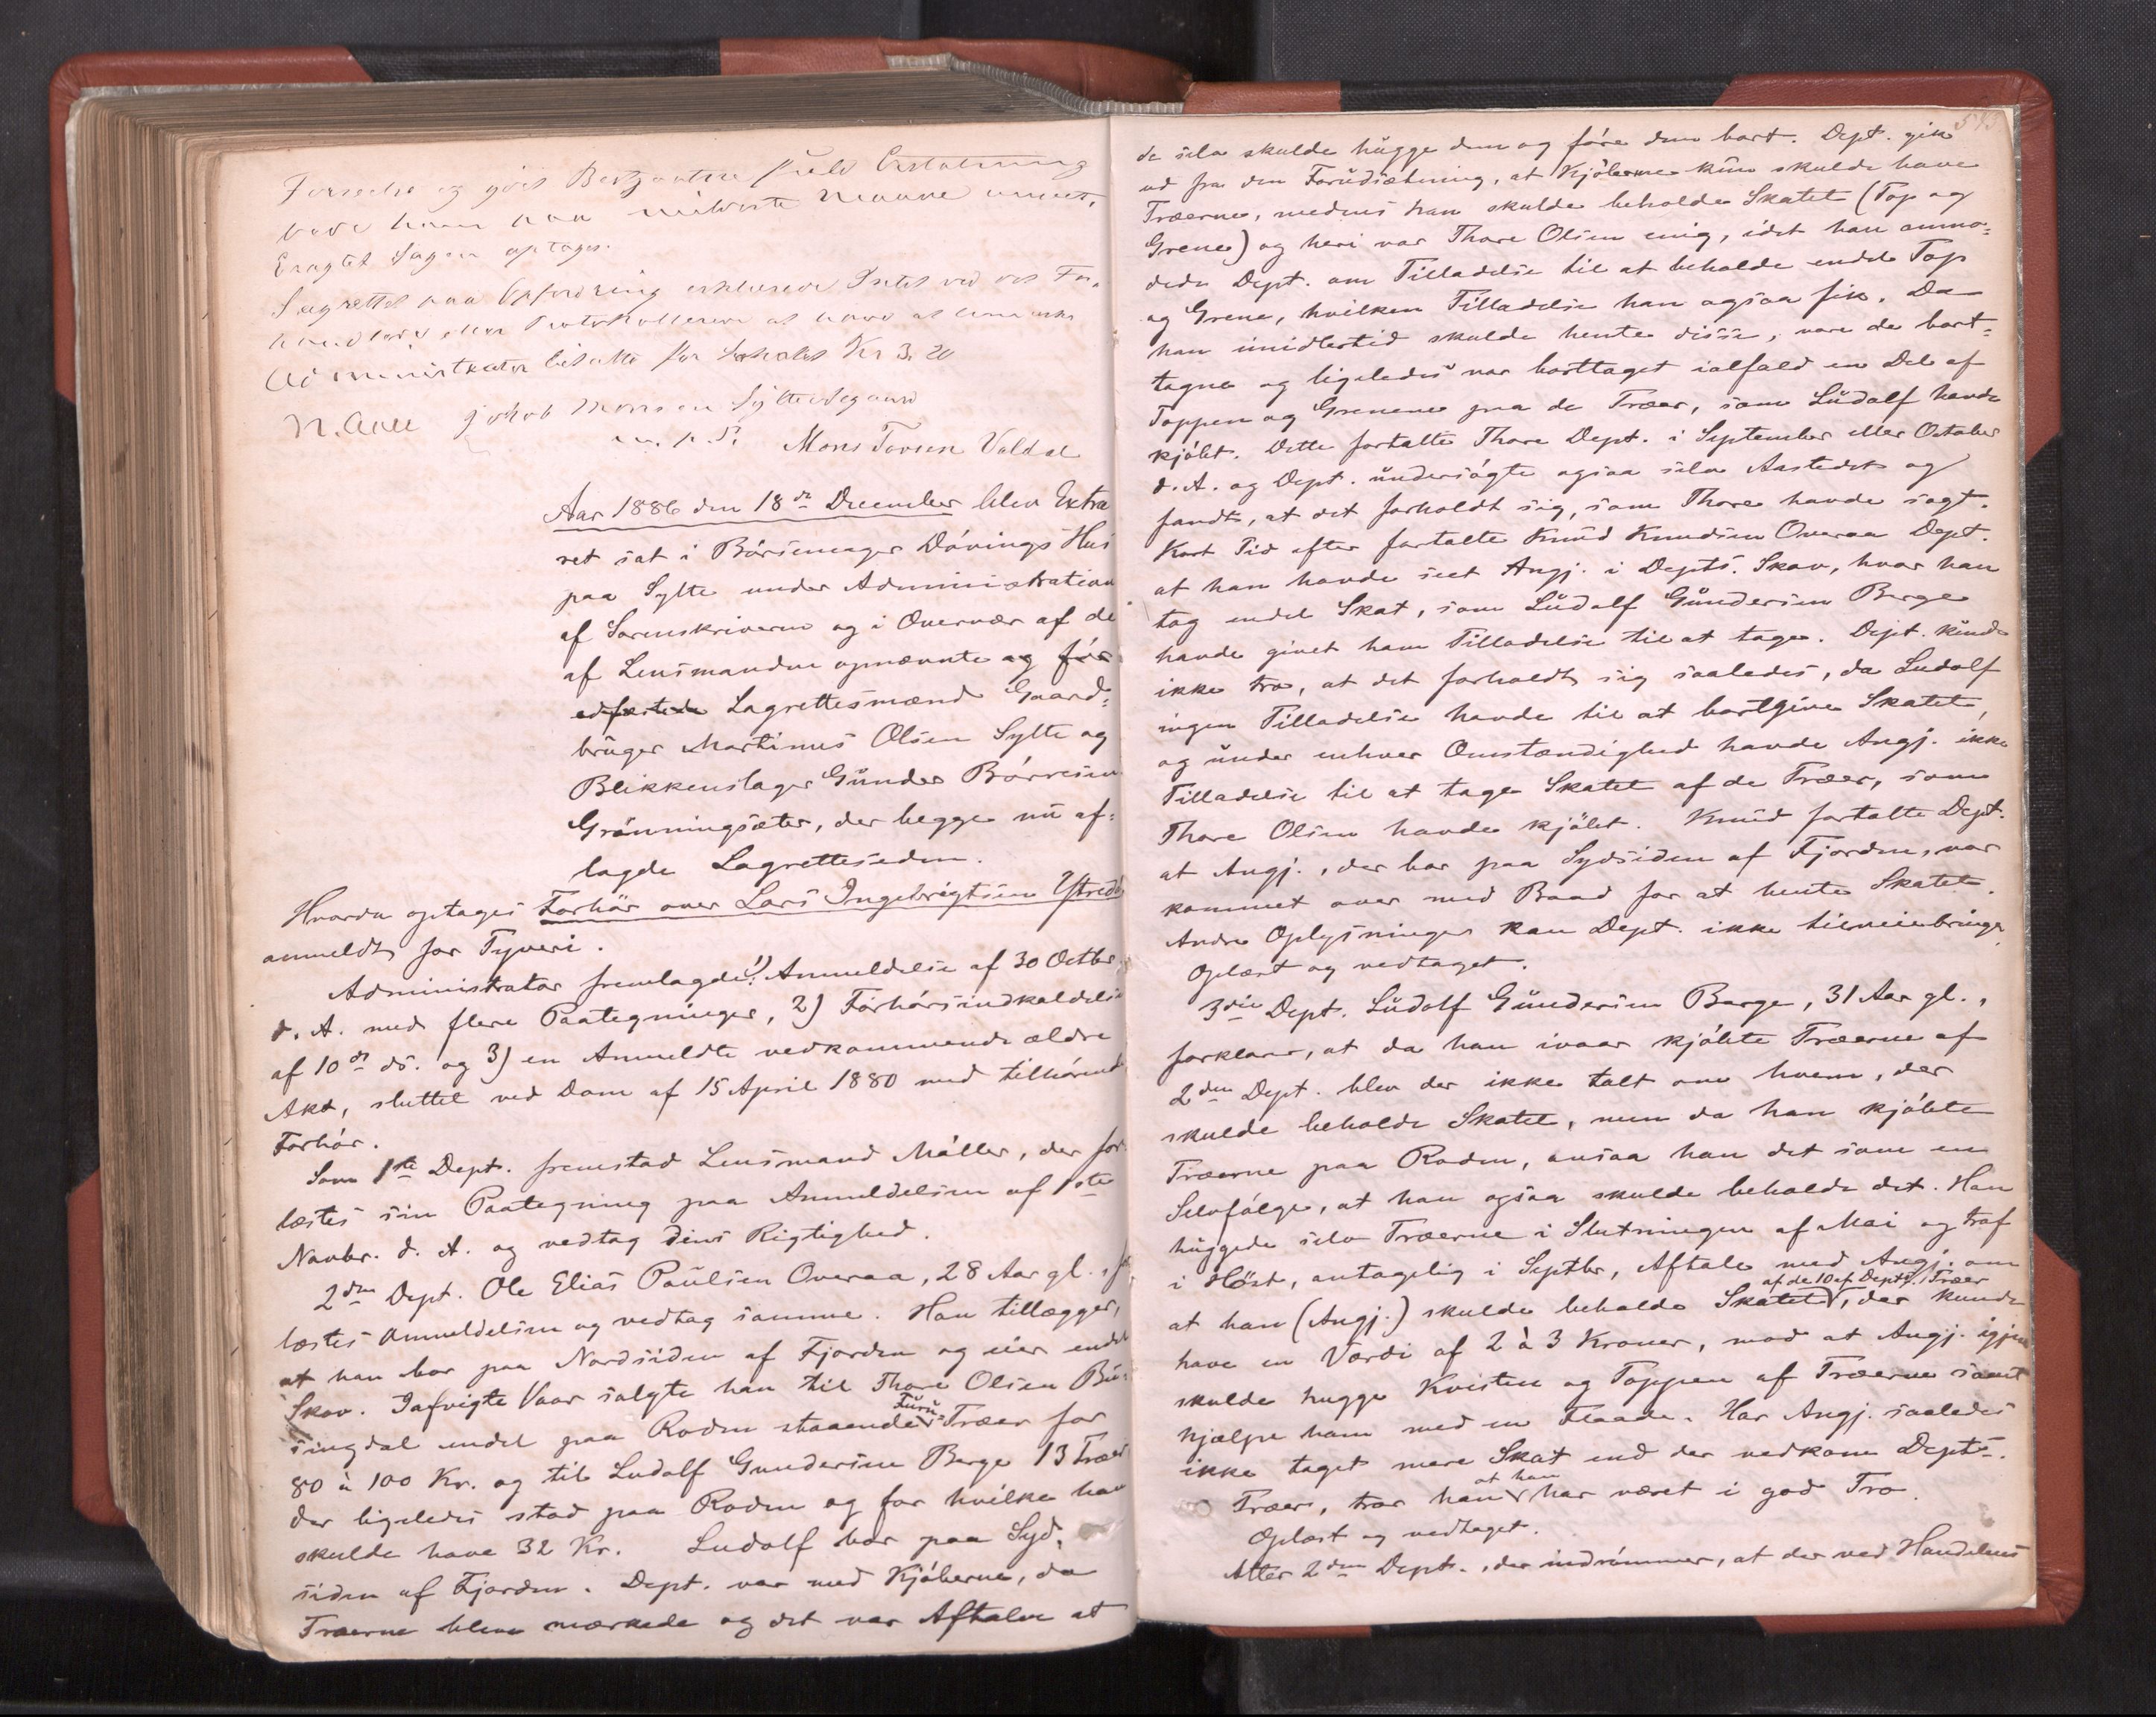 Forseelse og give Bekjendtne fuld Erstatning
have ham paa mildeste Maade
Eragtet Sagen optages.
Lagrettet paa Opfordring erklærede Intet ved det For-
Administrator betalte for Lokalet Kr 3. 20
N. Aall Jakob Monsen Syltebøgaard
m. p. P. Mons Torsen Valdal
Aar 1886 den 18de December blev Extra
ret sat i Børsemager Døvings Hus
paa Sylte under Administration
af Sorenskriveren og i Overvær af de
af Lensmanden opnævnte og før
edfæstede Lagrettesmænd Gaard-
brüger Martinus Olsen Sylte og
Blikkenslager Günder Børresen
Grønningsæter, der begge nü af-
lagde Lagretteseden.
Hvorda optages Forhör over Lars Ingebrigtsen Ytredal
anmeldt for Tyveri.
Administrator fremlagde: 1) Anmeldelse af 30 Octbr.
d. A. med flere Paategninger, 2) Forhørsindkaldelse
af 10de ds. og 3) en Anmeldte vedkommende ældre
Akt, sluttet ved Dom af 15 April 1880 med tilhørende
Forhør.
Som 1ste Dept. fremstod Lensmand Møller, der fore-
læstes sin Paategning paa Anmeldelsen af 1ste
Novbr. d. A. og vedtog dens Rigtighed.
2den Dept. Ole Elias Paülsen Overaa, 28 Aar gl., fore-
læstes Anmeldelsen og vedtog samme. Han tillægger,
at han bor paa Nordsiden af Fjorden og eier endel
Skov. Iafvigte Vaar solgte han til Thore Olsen Bü-
singdal endel paa Roden staaende Fürü-Træer for
80 à 100 Kr. og til Ludolf Gundersen Berge 13 Træer
der ligeledes stod paa Roden og for hvilke han
skulde have 32 Kr. Ludolf bor paa Syd-
siden af Fjorden. Dept. var med Kjøberne, da
Træerne bleve mærkede og det var Aftalen at
543
de selv skulde hügge dem og føre dem bort. Dept. gik
ud fra den Forüdsætning, at Kjøberne kün skulde have
Træerne, medens han skulde beholde Skatet (Top og
Grene) og heri var Thore Olsen enig, idet han anmo-
dede Dept. om Tilladelse til at beholde endel Top
og Grene, hvilken Tilladelse han ogsaa fik. Da
han imidlertid skulde hente disse, vare de bort-
tagne og ligeledes var borttaget ialfald en Del af
Toppen og Grenene paa de Træer, som Lüdolf havde
kjøbt. Dette fortalte Thore Dept. i September eller October
d. A. og Dept. ündersøgte ogsaa selv Aastedet og
fandt, at det forholdt sig, som Thore havde sagt.
Kort Tid efter fortalte Knüd Knudsen Overaa Dept.
at han havde seet Angj. i Depts. Skov, hvor han
tog endel Skat, som Lüdolf Günderson Berge
havde givet ham Tilladelse til at tage. Dept. künde
ikke tro, at det forholdt sig saaledes, da Ludolf
ingen Tilladelse havde til at bortgive Skatet,
og ünder enhver Omstændighed havde Angj. ikke
Tilladelse til at tage Skatet af de Træer, som
Thore Olsen havde kjöbt. Knüd fortalte Dept.
at Angj., der bor paa Sydsiden af Fjorden, var
kommet over med Baad for at hente Skatet.
Andre Oplysninger kan Dept. ikke tilveiebringe.
Oplæst og vedtaget.
3die Dept. Lüdolf Günderson Berge, 31 Aar gl.,
forklarer, at da han ivaar kjøbte Træerne af
2den Dept. blev der ikke talt om hvem, der
skulde beholde Skatet, men da han kjøbte
Træerne paa Roden, ansaa han det som en
Selvfølge, at han ogsaa skulde beholde det. Han
hüggede selv Træerne i Slutningen af Mai og traf
i Høst, antagelig i Septbr, Aftale med Angj. om
at han (Angj.) skulde beholde Skatet af de 10 af Depts. Træer, der kunde
have en Værdi af 2 à 3 Kroner, mod at Angj. igjen
skulde hugge Kvisten og Toppen af Træerne samt
hjælpe ham med en Flaade. Har Angj. saaledes
ikke taget mere Skat end der vedkom Depts.
Træer, tror han at han har været i god Tro.
Oplæst og vedtaget.
Atter 2den Dept., der indrømmer, at der ved Handelens